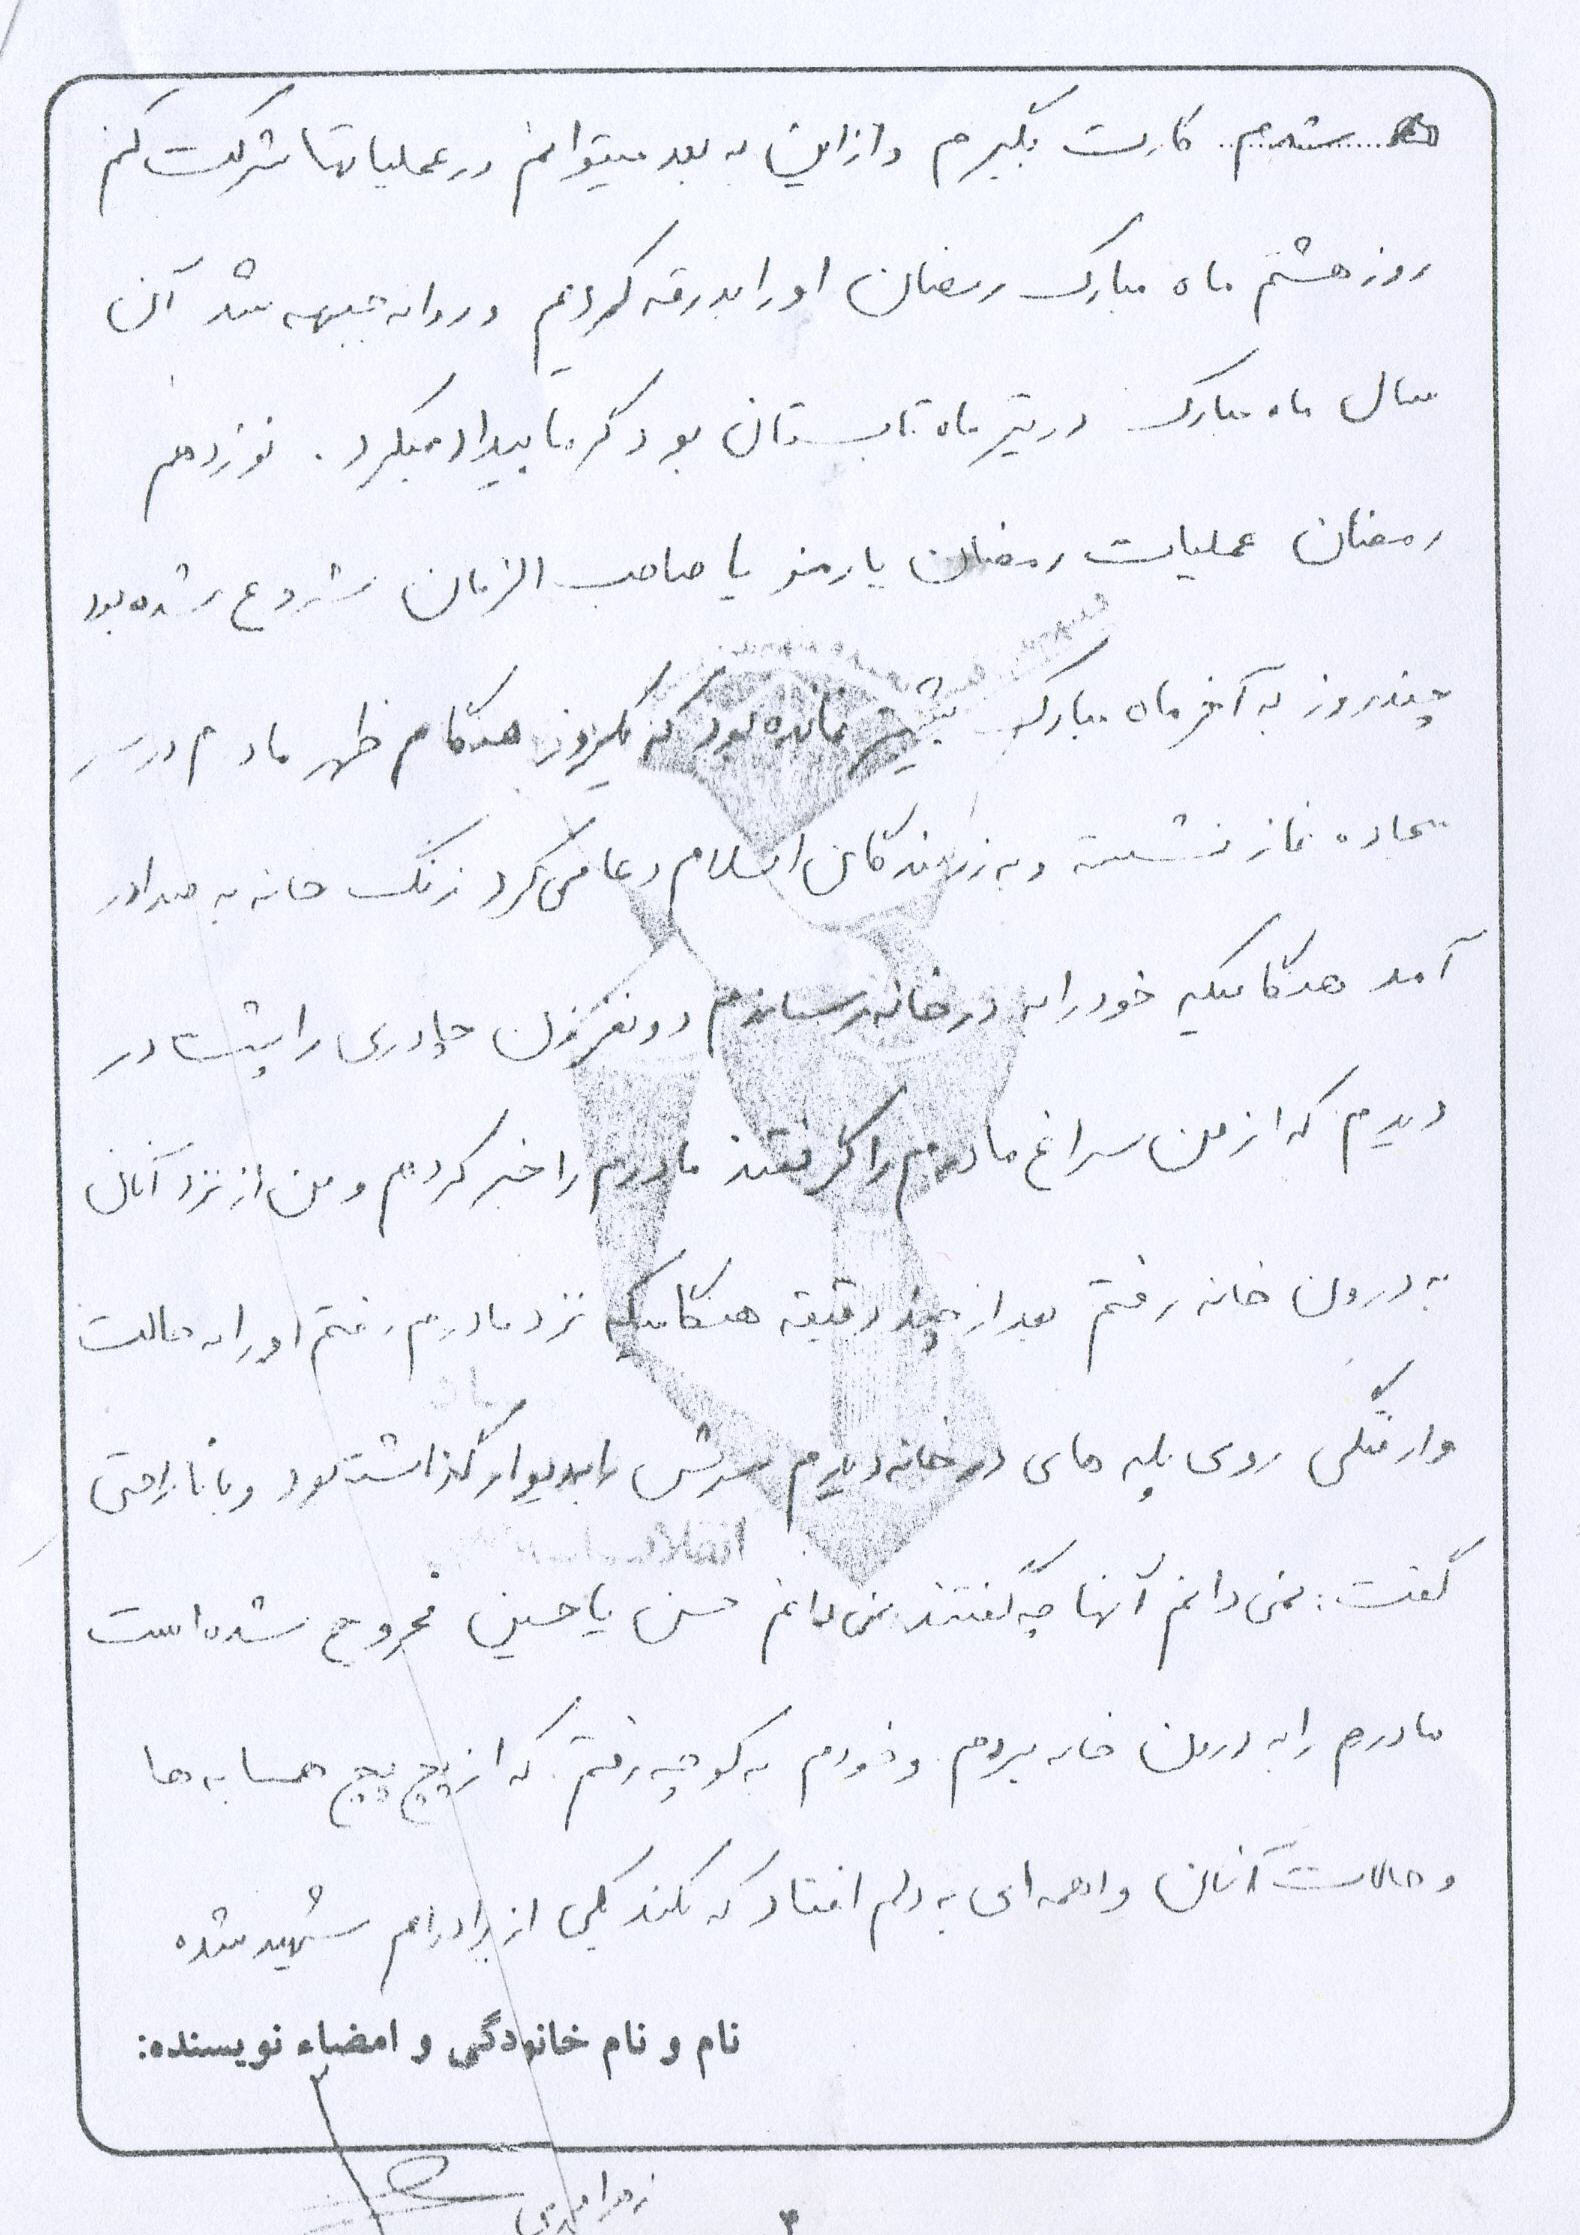 شدم کارت بگیرم و از این به بعد میتوانم در عملیاتها شرکت کنم
روز هشتم ماه مبارک رمضان او را بدرقه کردیم و روانه جبهه شد آن
سال ماه مبارک در تیر ماه تابستان بود گرما بیداد میکرد. نوزدهم
رمضان عملیات رمضان با رمز یا صاحب الزمان شروع شده بود
چند روز به آخر ماه مبارک بیشتر نمانده بود که یکروز هنگام ظهر مادرم در سر
سجاده نماز نشسته و به رزمندگان اسلام دعا می کرد زنگ خانه به صدا در
آمد هنگامیکه خود را به در خانه رساندم دو نفر زن چادری را پشت در
دیدم که از من سراغ مادرم را گرفتند مادرم را خبر کردم و من از نزد آنان
به درون خانه رفتم بعد از چند دقیقه هنگامیکه نزد مادرم رفتم او را به حالت
وارفتگی روی پله های در خانه دیدم سرش را به دیوار گذاشته بود و با ناراحتی
گفت: نمی دانم آنها چه گفتند نمی دانم حسن یا حسین مجروح شده است
مادرم را به درون خانه بردم و خودم به کوچه رفتم که از پچ پچ همسایه ها
و حالات آنان واهمه ای به دلم افتاد که نکند یکی از برادرانم شهید شده
نام و نام خانوادگی و امضاء نویسنده:
انقلاب اسلامی
زهرا